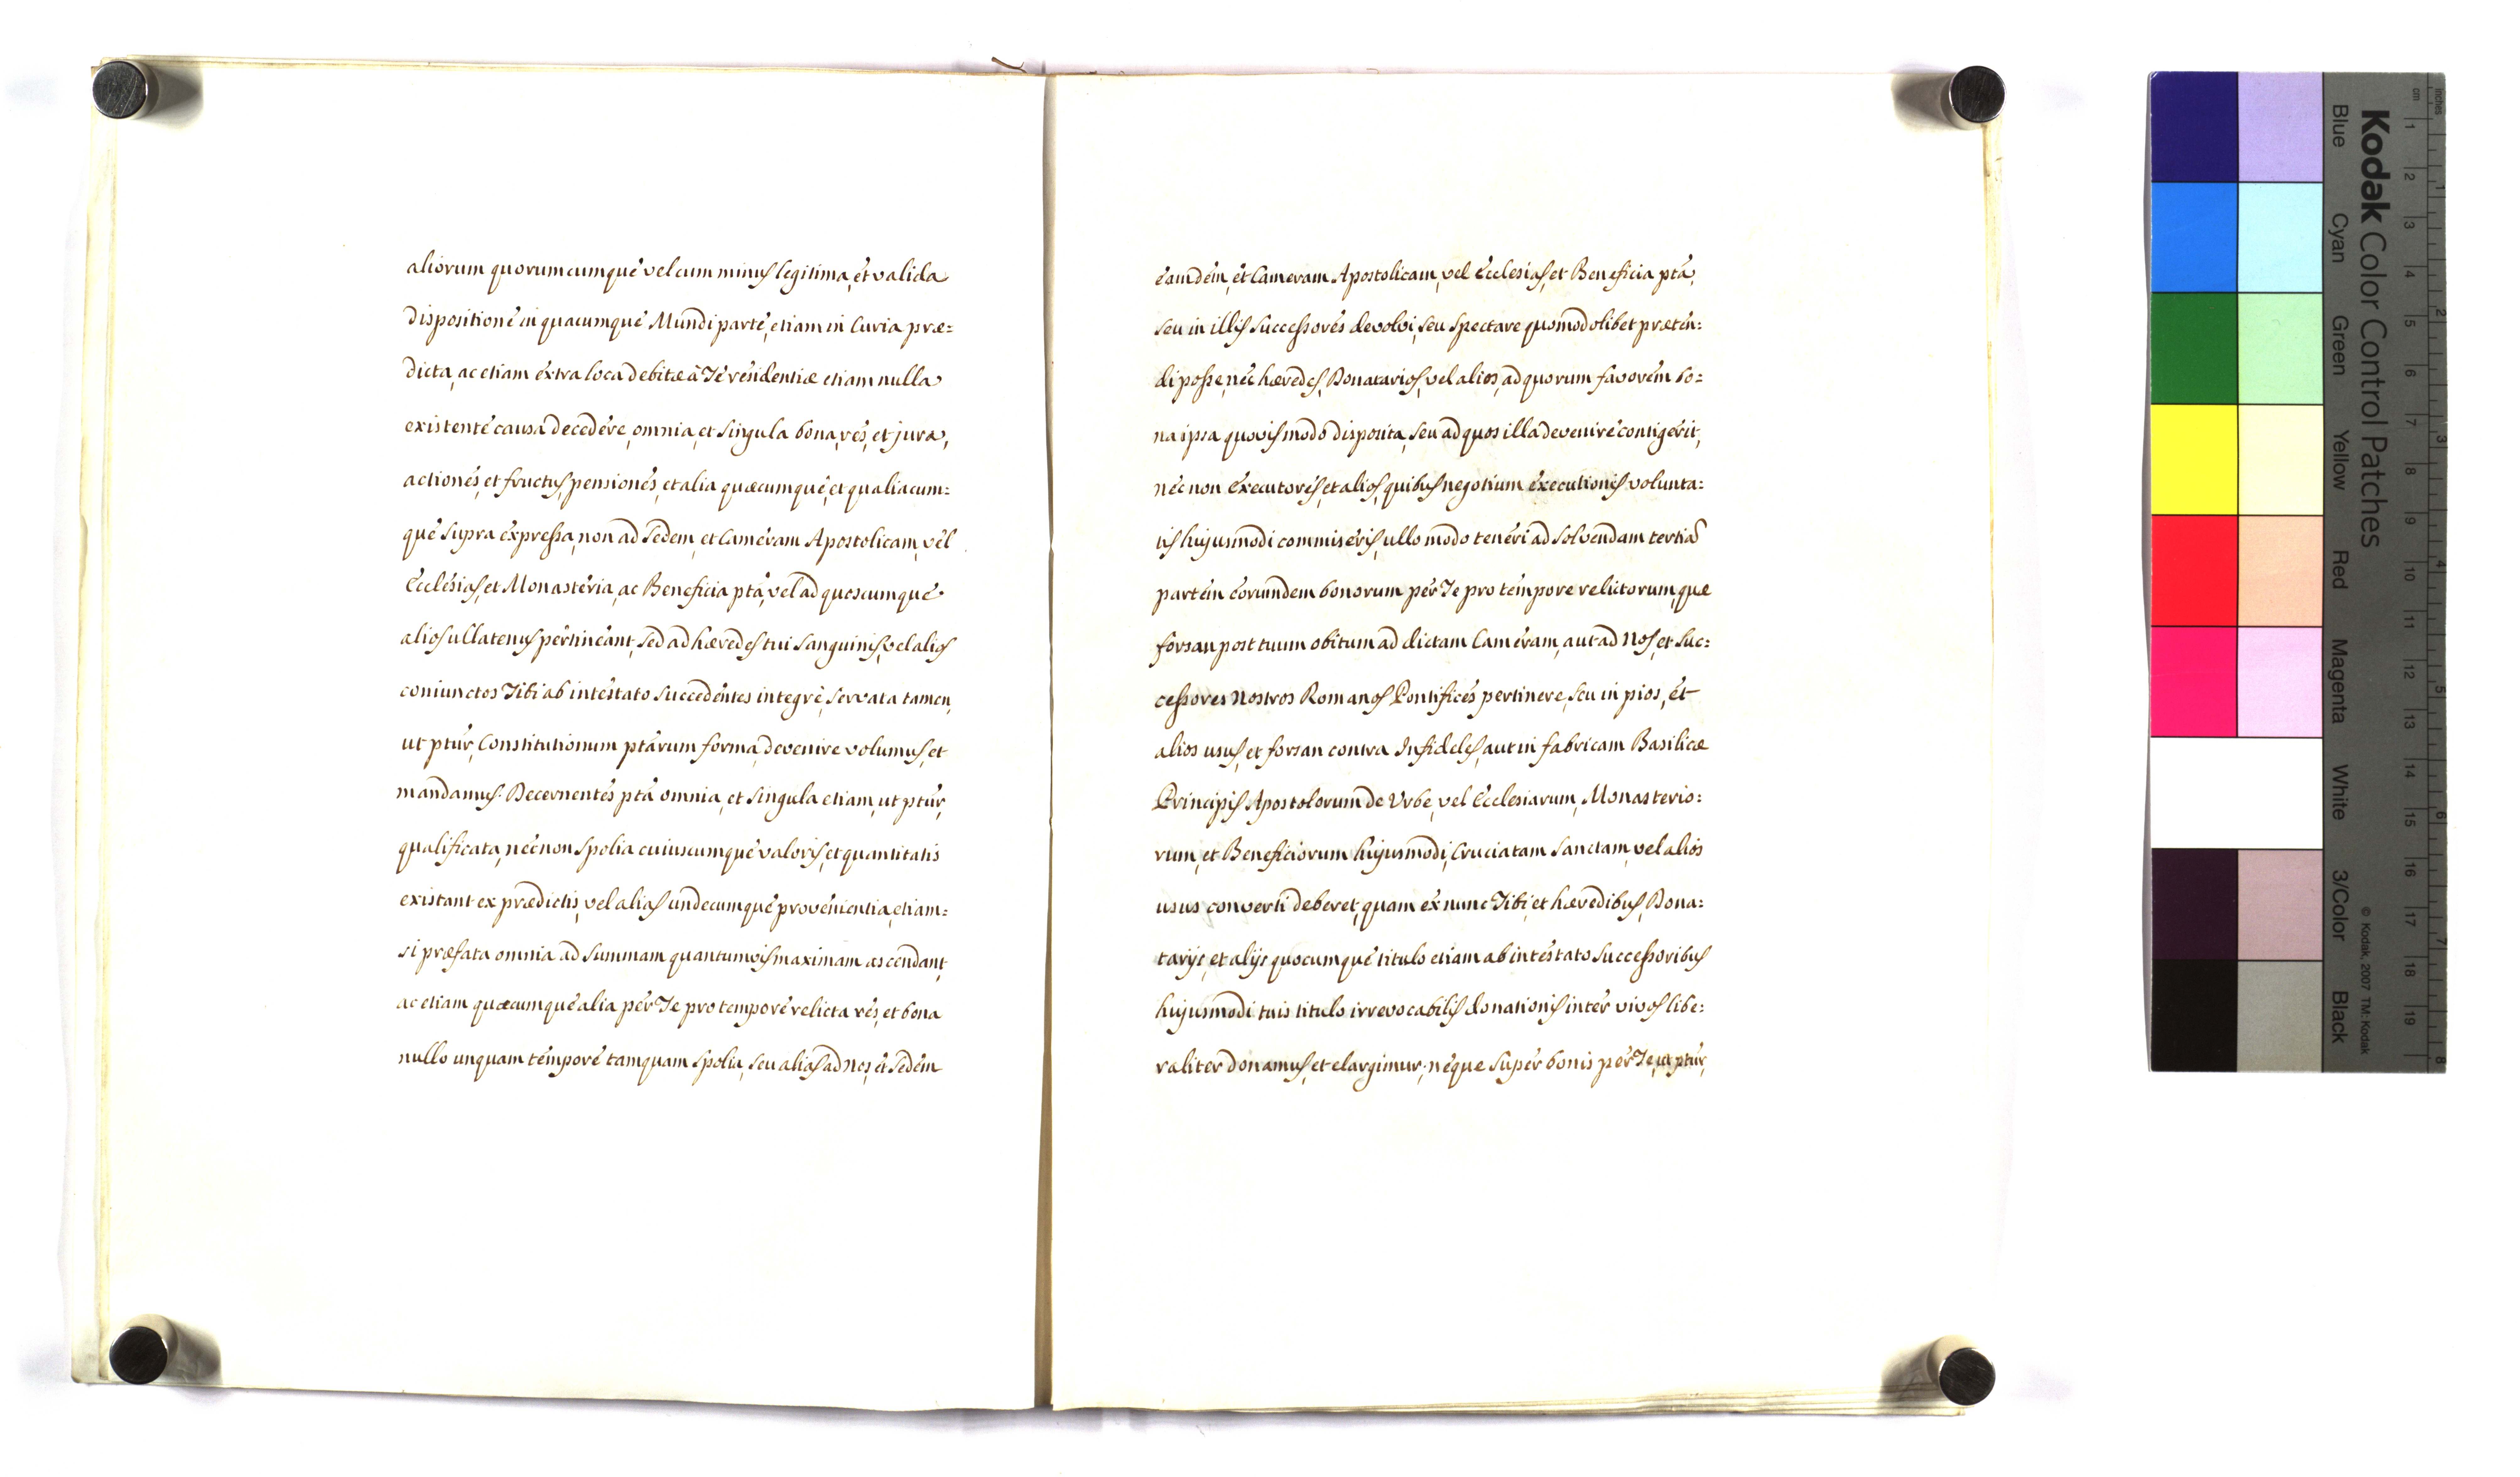 aliorum quorumcumque vel cum minus legitima, et valida
dispositione in quacumque Mundi parte, etiam in Curia præ=
dicta, ac etiam extra loca debitæ à Te residentiæ etiam nulla
existente causa decedere, omnia, et singula bona, res, et jura,
actiones, et fructus, pensiones, et alia quæcumque, et qualiacum=
que supra expressa, non ad Sedem, et Cameram Apostolicam, vel
Ecclesias, et Monasteria, ac Beneficia ptã, vel ad quoscumque
alios ullatenus pertineant, sed ad hæredes tui sanguinis, vel alios
coniunctos Tibi ab intestato succedentes integrè, servata tamen,
ut ptũr, Constitutionum ptãrum forma, devenire volumus, et
mandamus. Decernentes ptã omnia, et singula etiam, ut ptũr,
qualificata, nec non spolia cuiuscumque valoris, et quantitatis
existant ex prædictis, vel alias undecumque provenientia, etiam=
si præfata omnia ad summam quantumvis maximam ascendant,
ac etiam quæcumque alia per Te pro tempore relicta res, et bona
nullo unquam tempore tamquam spolia, seu alias ad Nos, et Sedem
eamdem, et Cameram Apostolicam, vel Ecclesias, et Beneficia ptã,
seu in illis successores devolvi, seu spectare quomodolibet præten=
di posse, nec hæredes, Donatarios, vel alios, ad quorum favorem bo=
na ipsa quovis modo disposita, seu ad quos illa devenire contigerit,
nec non executores, et alios, quibus negotium executionis volunta=
tis hujusmodi commiseris, ullo modo teneri ad solvendam tertiã
partem eorumdem bonorum per Te pro tempore relictorum, quæ
forsan post tuum obitum ad dictam Cameram, aut ad Nos, et suc=
cessores Nostros Romanos Pontifices pertinere, seu in pios, et
alios usus, et forsan contra Infideles, aut in fabricam Basilicæ
Principis Apostolorum de Urbe, vel Ecclesiarum, Monasterio=
rum, et Beneficiorum hujusmodi, Cruciatam Sanctam, vel alios
usus converti deberet, quam ex nunc Tibi, et hæredibus, Dona=
tarijs, et alijs quocumque titulo etiam ab intestato successoribus
hujusmodi tuis titulo irrevocabilis donationis inter vivos libe=
raliter donamus, et elargimur. neque super bonis per Te, ut ptũr,
Kodak Color Control Patches
Blue Cyan Green Yellow Red Magenta White 3/Color Black
© Kodak, 2007 TM: Kodak
cm 1 2 3 4 5 6 7 8 9 10 11 12 13 14 15 16 17 18 19
inches 1 2 3 4 5 6 7 8